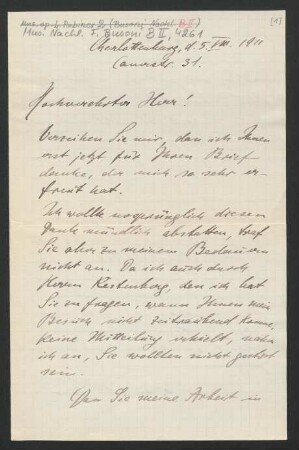 Mus. ep. L. Rubiner 2 (Busoni-Nachl. B II)
Mus. Nachl. F. Busoni B II, 4261
(1)
Charlottenburg, d. 5. VIII. 1911
31.
Hochverehrter Herr!
Verzeihen Sie mir, dass ich Ihnen
erst jetzt für Ihren Brief
danke, der mich so sehr er-
freut hat.
Ich wollte ursprünglich diesen
Dank mündlich abstatten, traf
Sie aber zu meinem Bedauern
nicht an. Da ich auch durch
Herrn Kestenberg, den ich bat
Sie zu fragen, wann Ihnen mein
Besuch nicht zeitraubend käme,
keine Mitteilung erhielt, nahm
ich an, Sie wollten nicht gestört
sein.
Dass Sie meine Arbeit in